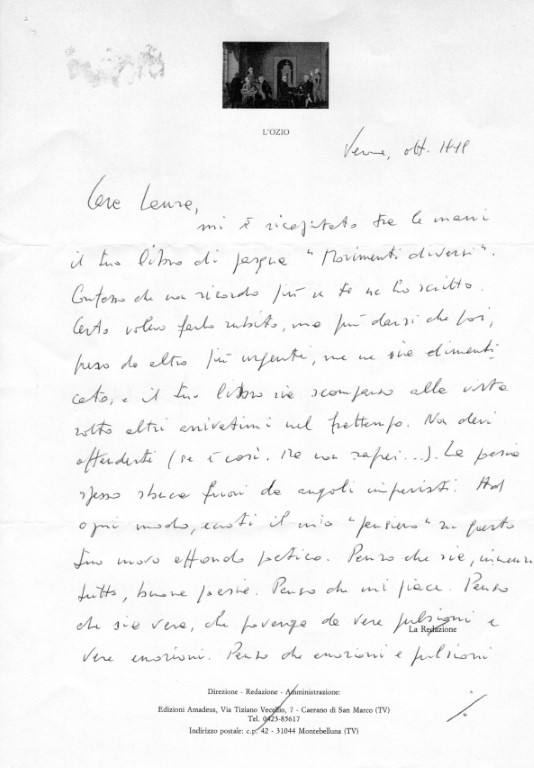 L'OZIO
ott.
Care Laura,
mi è ricapitato tra le mani
il tuo libro di "Movimenti diversi".
Confesso che non ricordo più se te ne ho scritto.
Certo volevo farlo subito, ma può darsi che poi,
preso da altro più urgente, me ne sia dimenti
cato, e il tuo libro sia scomparso alla vista
sotto altri arrivatimi nel frattempo. Non devi
offenderti (se è così. Ma non saprei...). La poesia
spesso sbuca fuori da angoli imprevisti. Ad
ogni modo, eccoti il mio "pensiero" su questo
tuo nuovo affondo poetico. Penso che sia, innanzi
tutto, buona poesia. Penso che mi piace. Penso
che sia vera, che provenga da vere pulsioni e
La Redazione
vere emozioni. Penso che emozioni e pulsioni
Direzione - Redazione - Amministrazione:
Edizioni Amadeus, Via Tiziano Vecellio, 7 - Caerano di San Marco (TV)
Tel. 0423-85617
Indirizzo postale: c.p. 42 - 31044 Montebelluna (TV)
./.